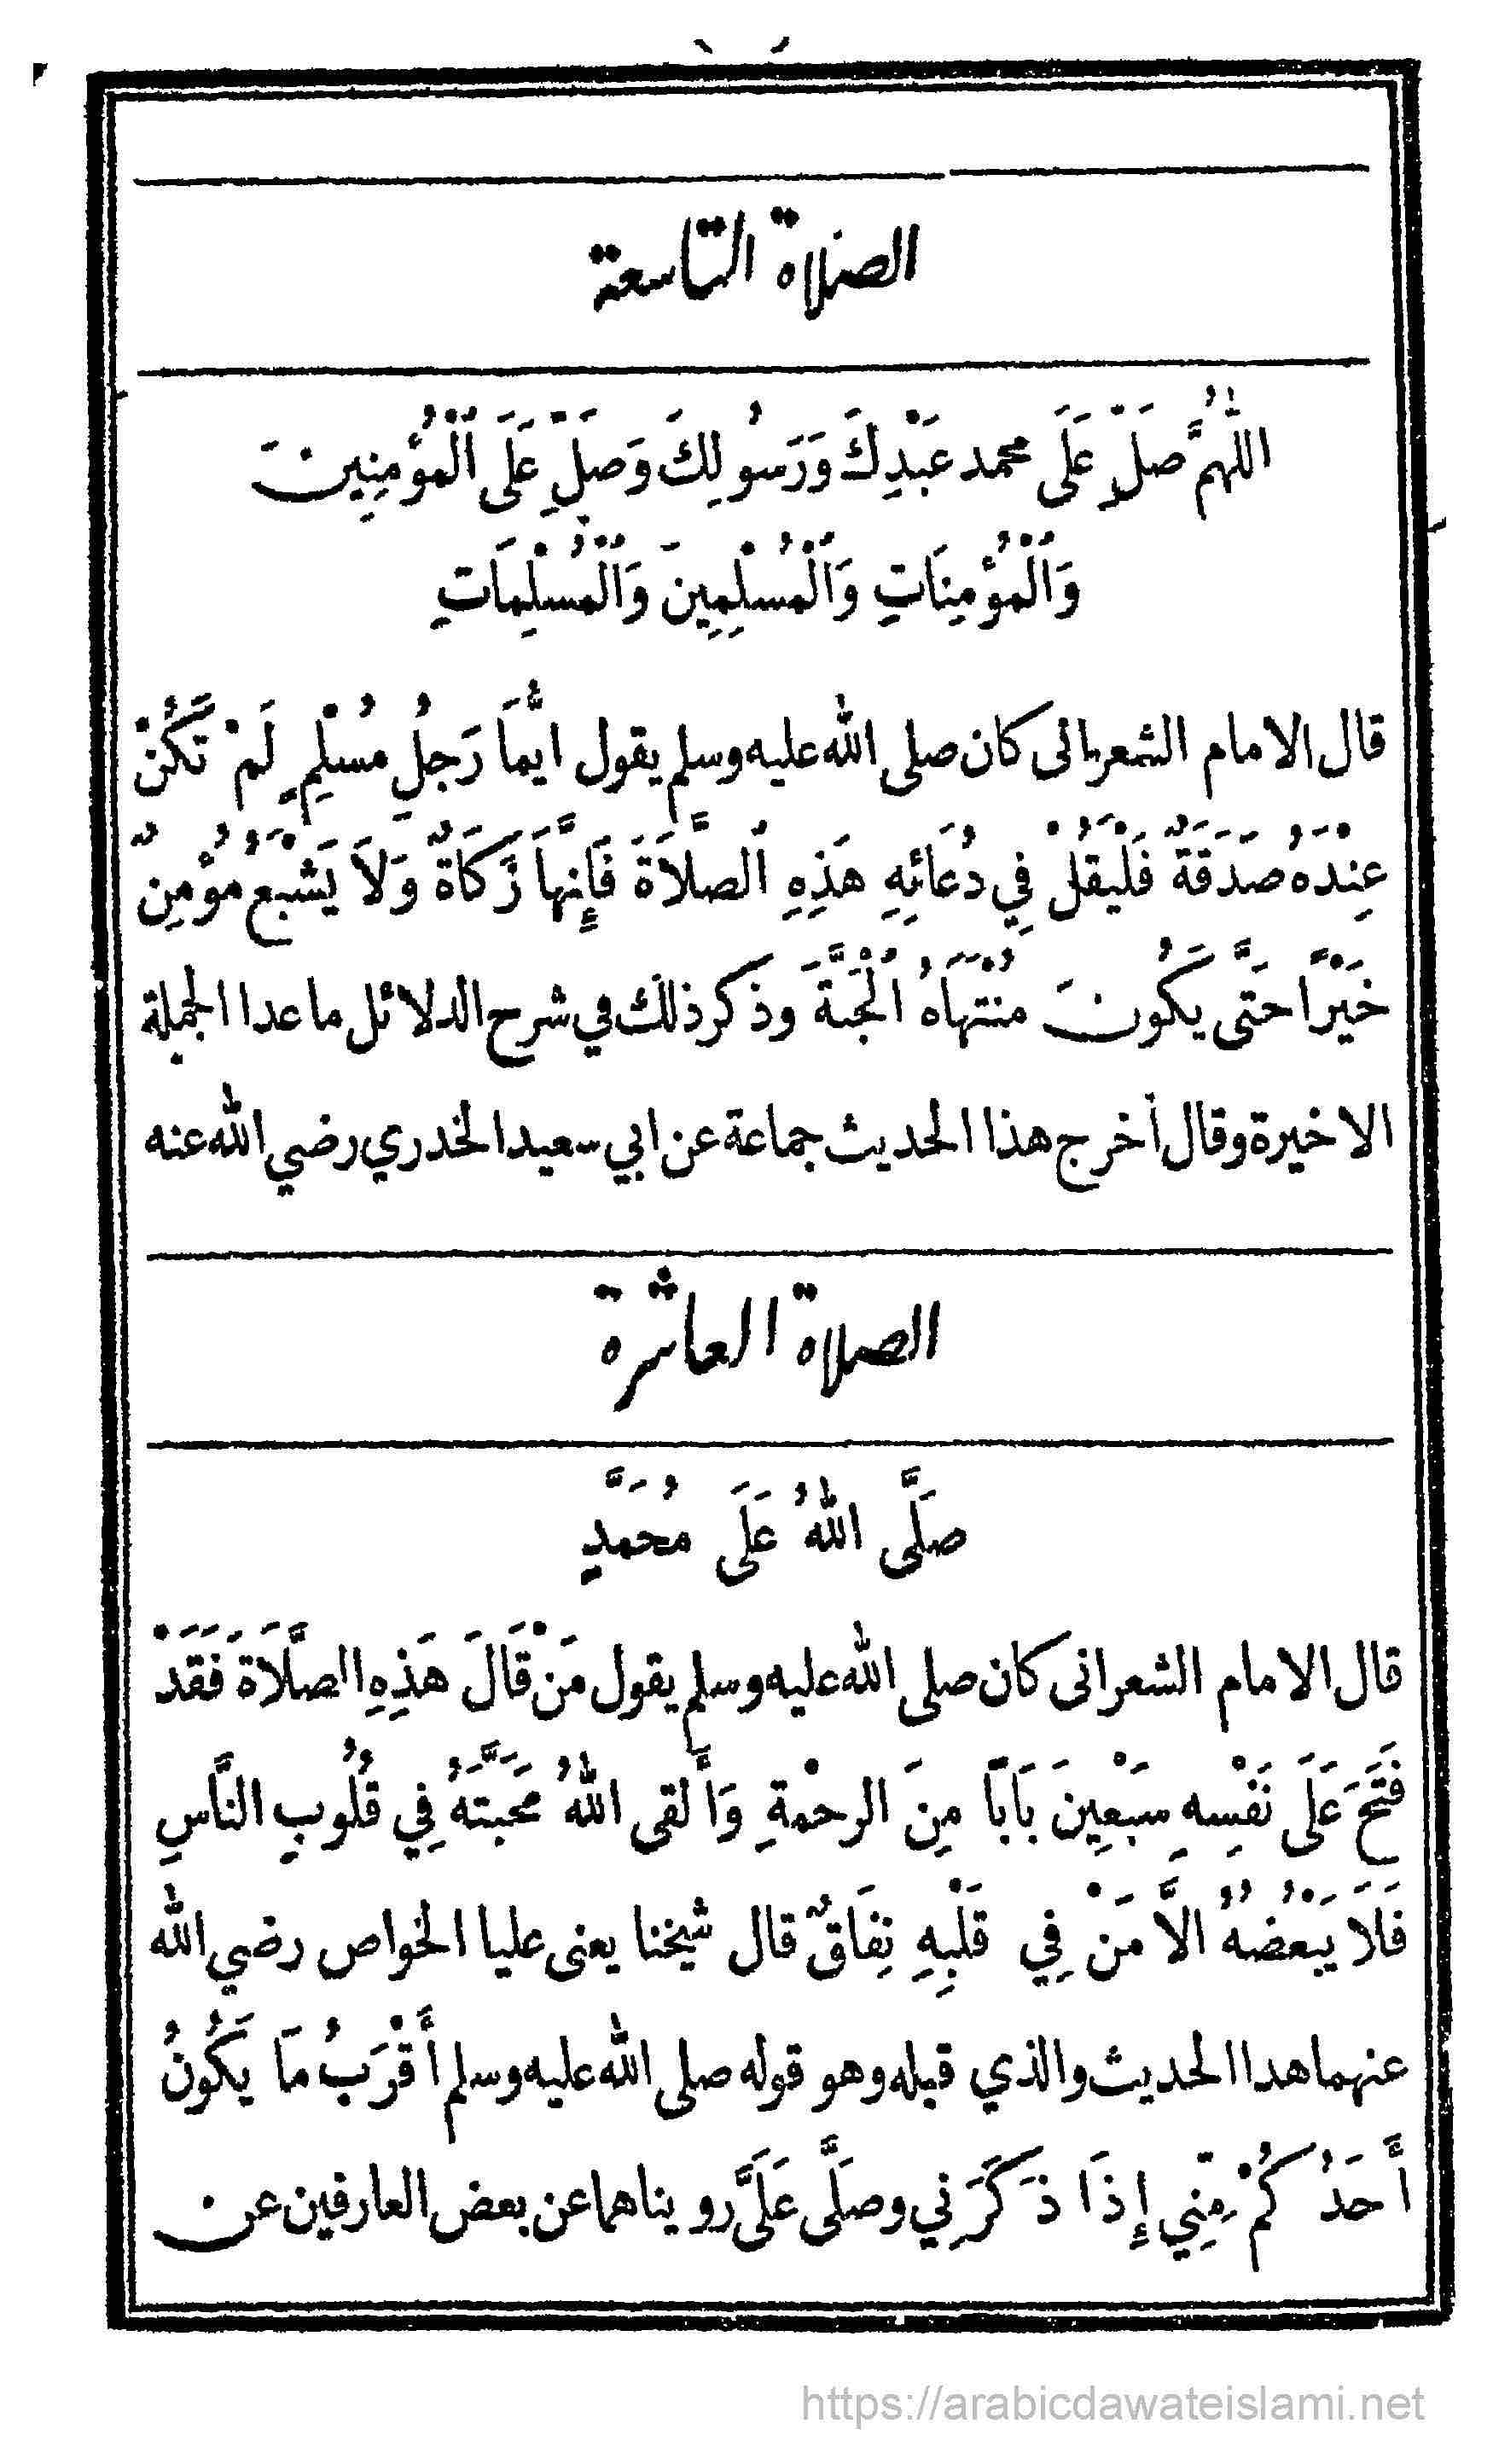 الصلاة التاسعة
اللّٰهُمَّ صَلِّ عَلَى محمد عَبْدِكَ وَرَسُولِكَ وَصَلِّ عَلَى ٱلْمُؤْمِنِينَ
وَٱلْمُؤْمِنَاتِ وَٱلْمُسْلِمِينَ وَٱلْمُسْلِمَاتِ
قال الامام الشعرانى كان صلى الله عليه وسلم يقول ايُّمَا رَجُلِ مُسْلِمٍ لَمْ تَكُنْ
عِنْدَهُ صَدَقَةٌ فَلْيَقُلْ فِي دُعَائِهِ هَذِهِ ٱلصَّلَاةَ فَإِنَّهَا زَكَاةٌ وَلَا يَشْبَعُ مُؤْمِنٌ
خَيْرًا حَتَّى يَكُونَ مُنْتَهَاهُ ٱلْجَنَّةَ وذكر ذلك في شرح الدلائل ما عدا الجملة
الاخيرة وقال أخرج هذا الحديث جماعة عن ابي سعيد الخدري رضي الله عنه
الصلاة العاشرة
صَلَّى اللهُ عَلَى مُحَمَّدٍ
قال الامام الشعرانى كان صلى الله عليه وسلم يقول مَنْ قَالَ هَذِهِ الصَّلَاةَ فَقَدْ
فَتَحَ عَلَى نَفْسِهِ سَبْعِينَ بَابًا مِنَ الرحْمةِ وَأَلقى اللهُ مَحَبَّتَهُ فِي قُلُوبِ النَّاسِ
فَلَا يَبْغُضُهُ الَّا مَنْ فِي قَلْبِهِ نِفَاقٌ قال شيخنا يعنى عليا الخواص رضي الله
عنهما هدا الحديث والذي قبله وهو قوله صلى الله عليه وسلم أَقْرَبُ مَا يَكُونُ
أَحَدُكُمْ مِنِّي إِذَا ذَكَرَنِي وصَلَّى عَلَيَّ رويناهما عن بعض العارفين عن
https://arabicdawateislami.net